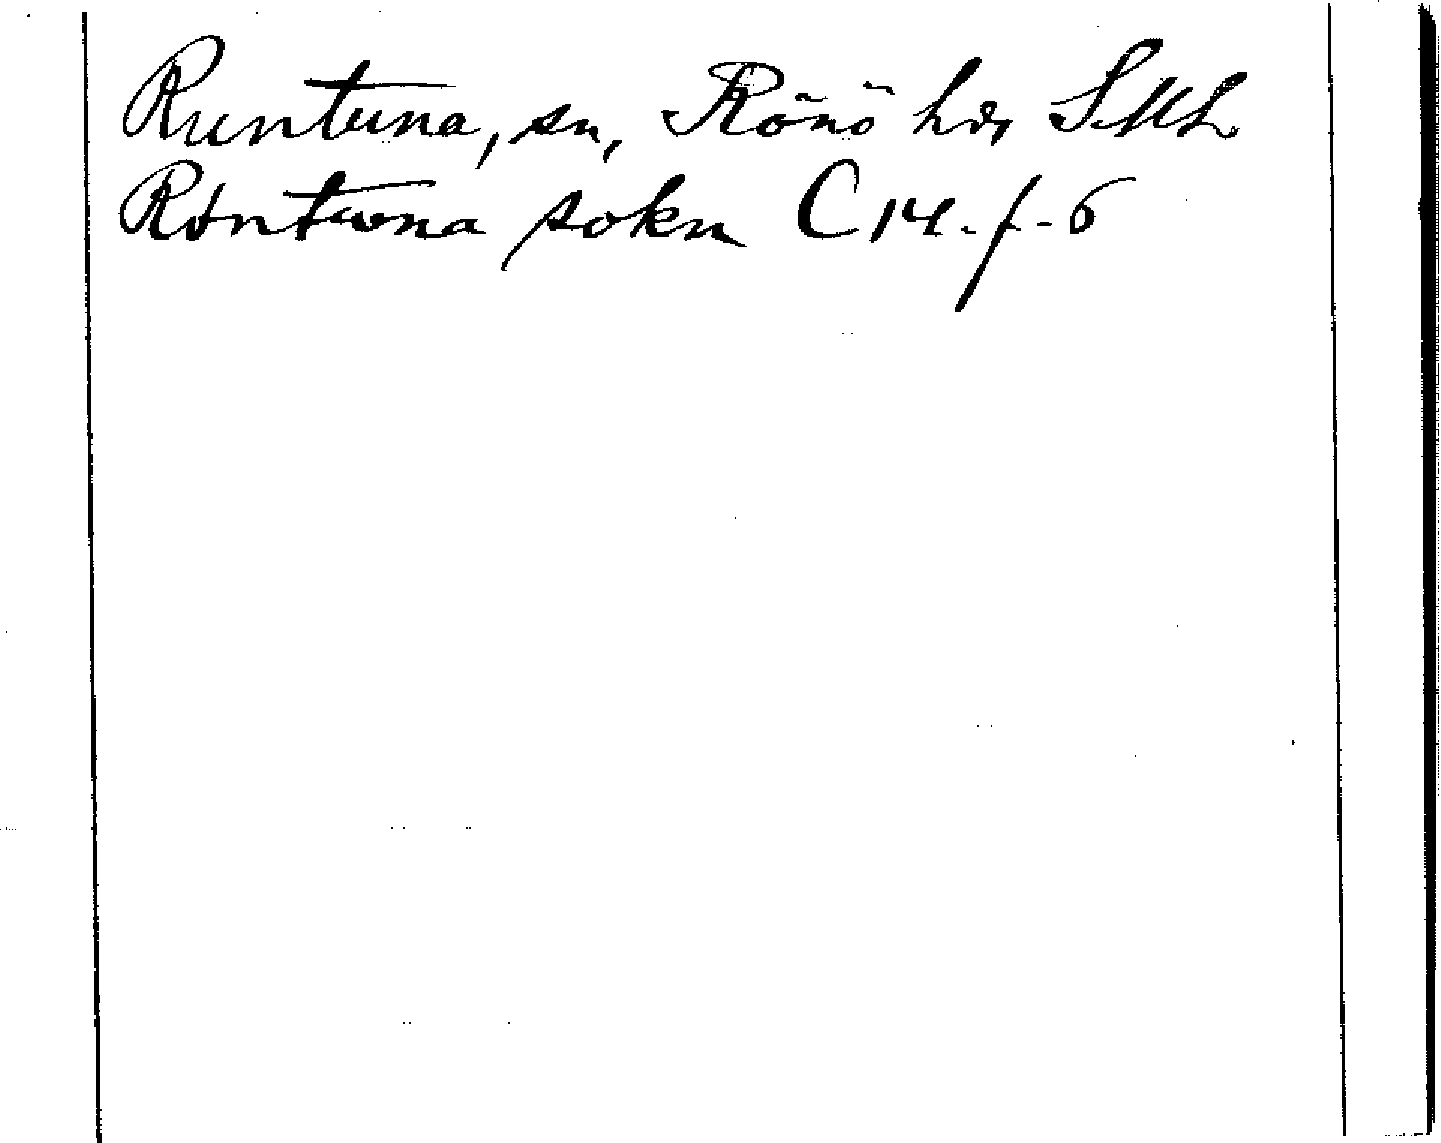 Runtuna, sn, Rönö hd, SML
Rontwna sokn C 14. f. 6